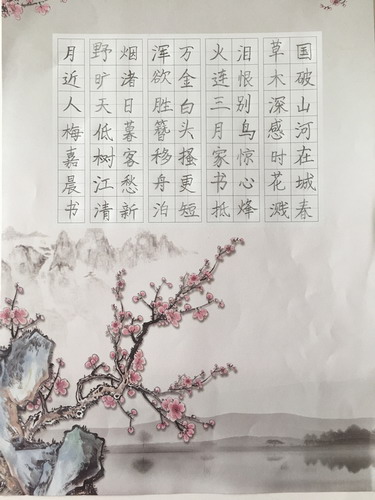 国破山河在城春
草木深感时花溅
泪恨别鸟惊心烽
火连三月家书抵
万金白头搔更短
浑欲胜簪移舟泊
烟渚日暮客愁新
野旷天低树江清
月近人梅嘉晨书